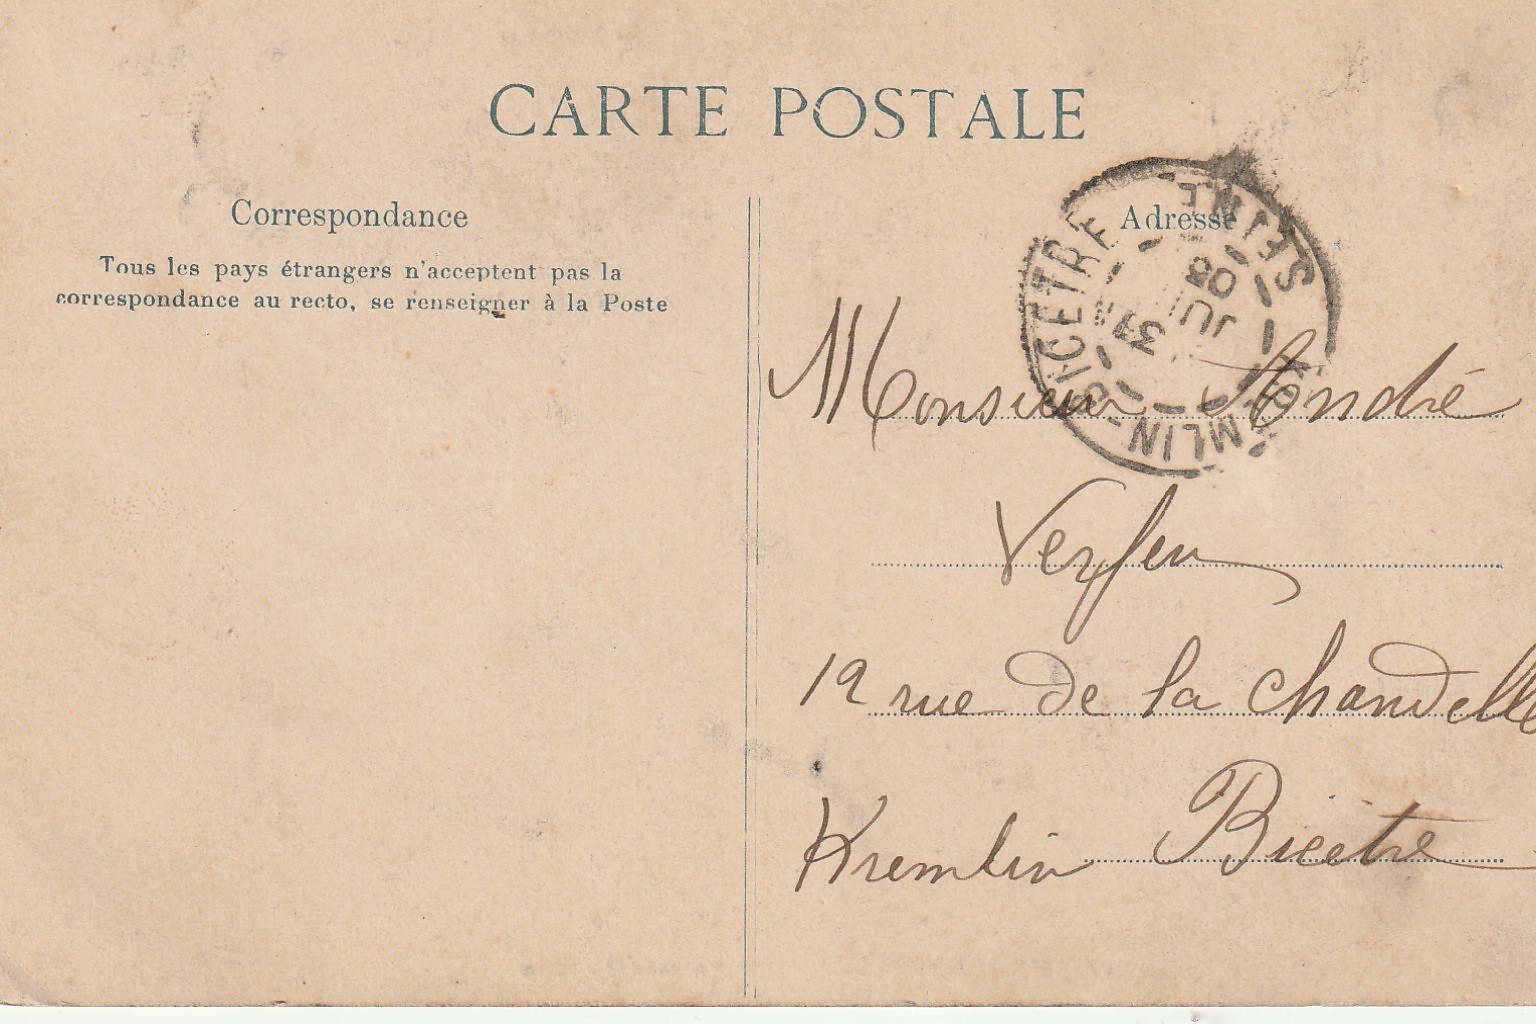 CARTE POSTALE
Correspondance
Tous les pays étrangers n'acceptent pas la
correspondance au recto, se renseigner à la Poste
Adresse
KREMLIN-BICETRE
SEINE
31
JUIL
08
Monsieur André
12 rue de la Chandelle
Kremlin Bicètre